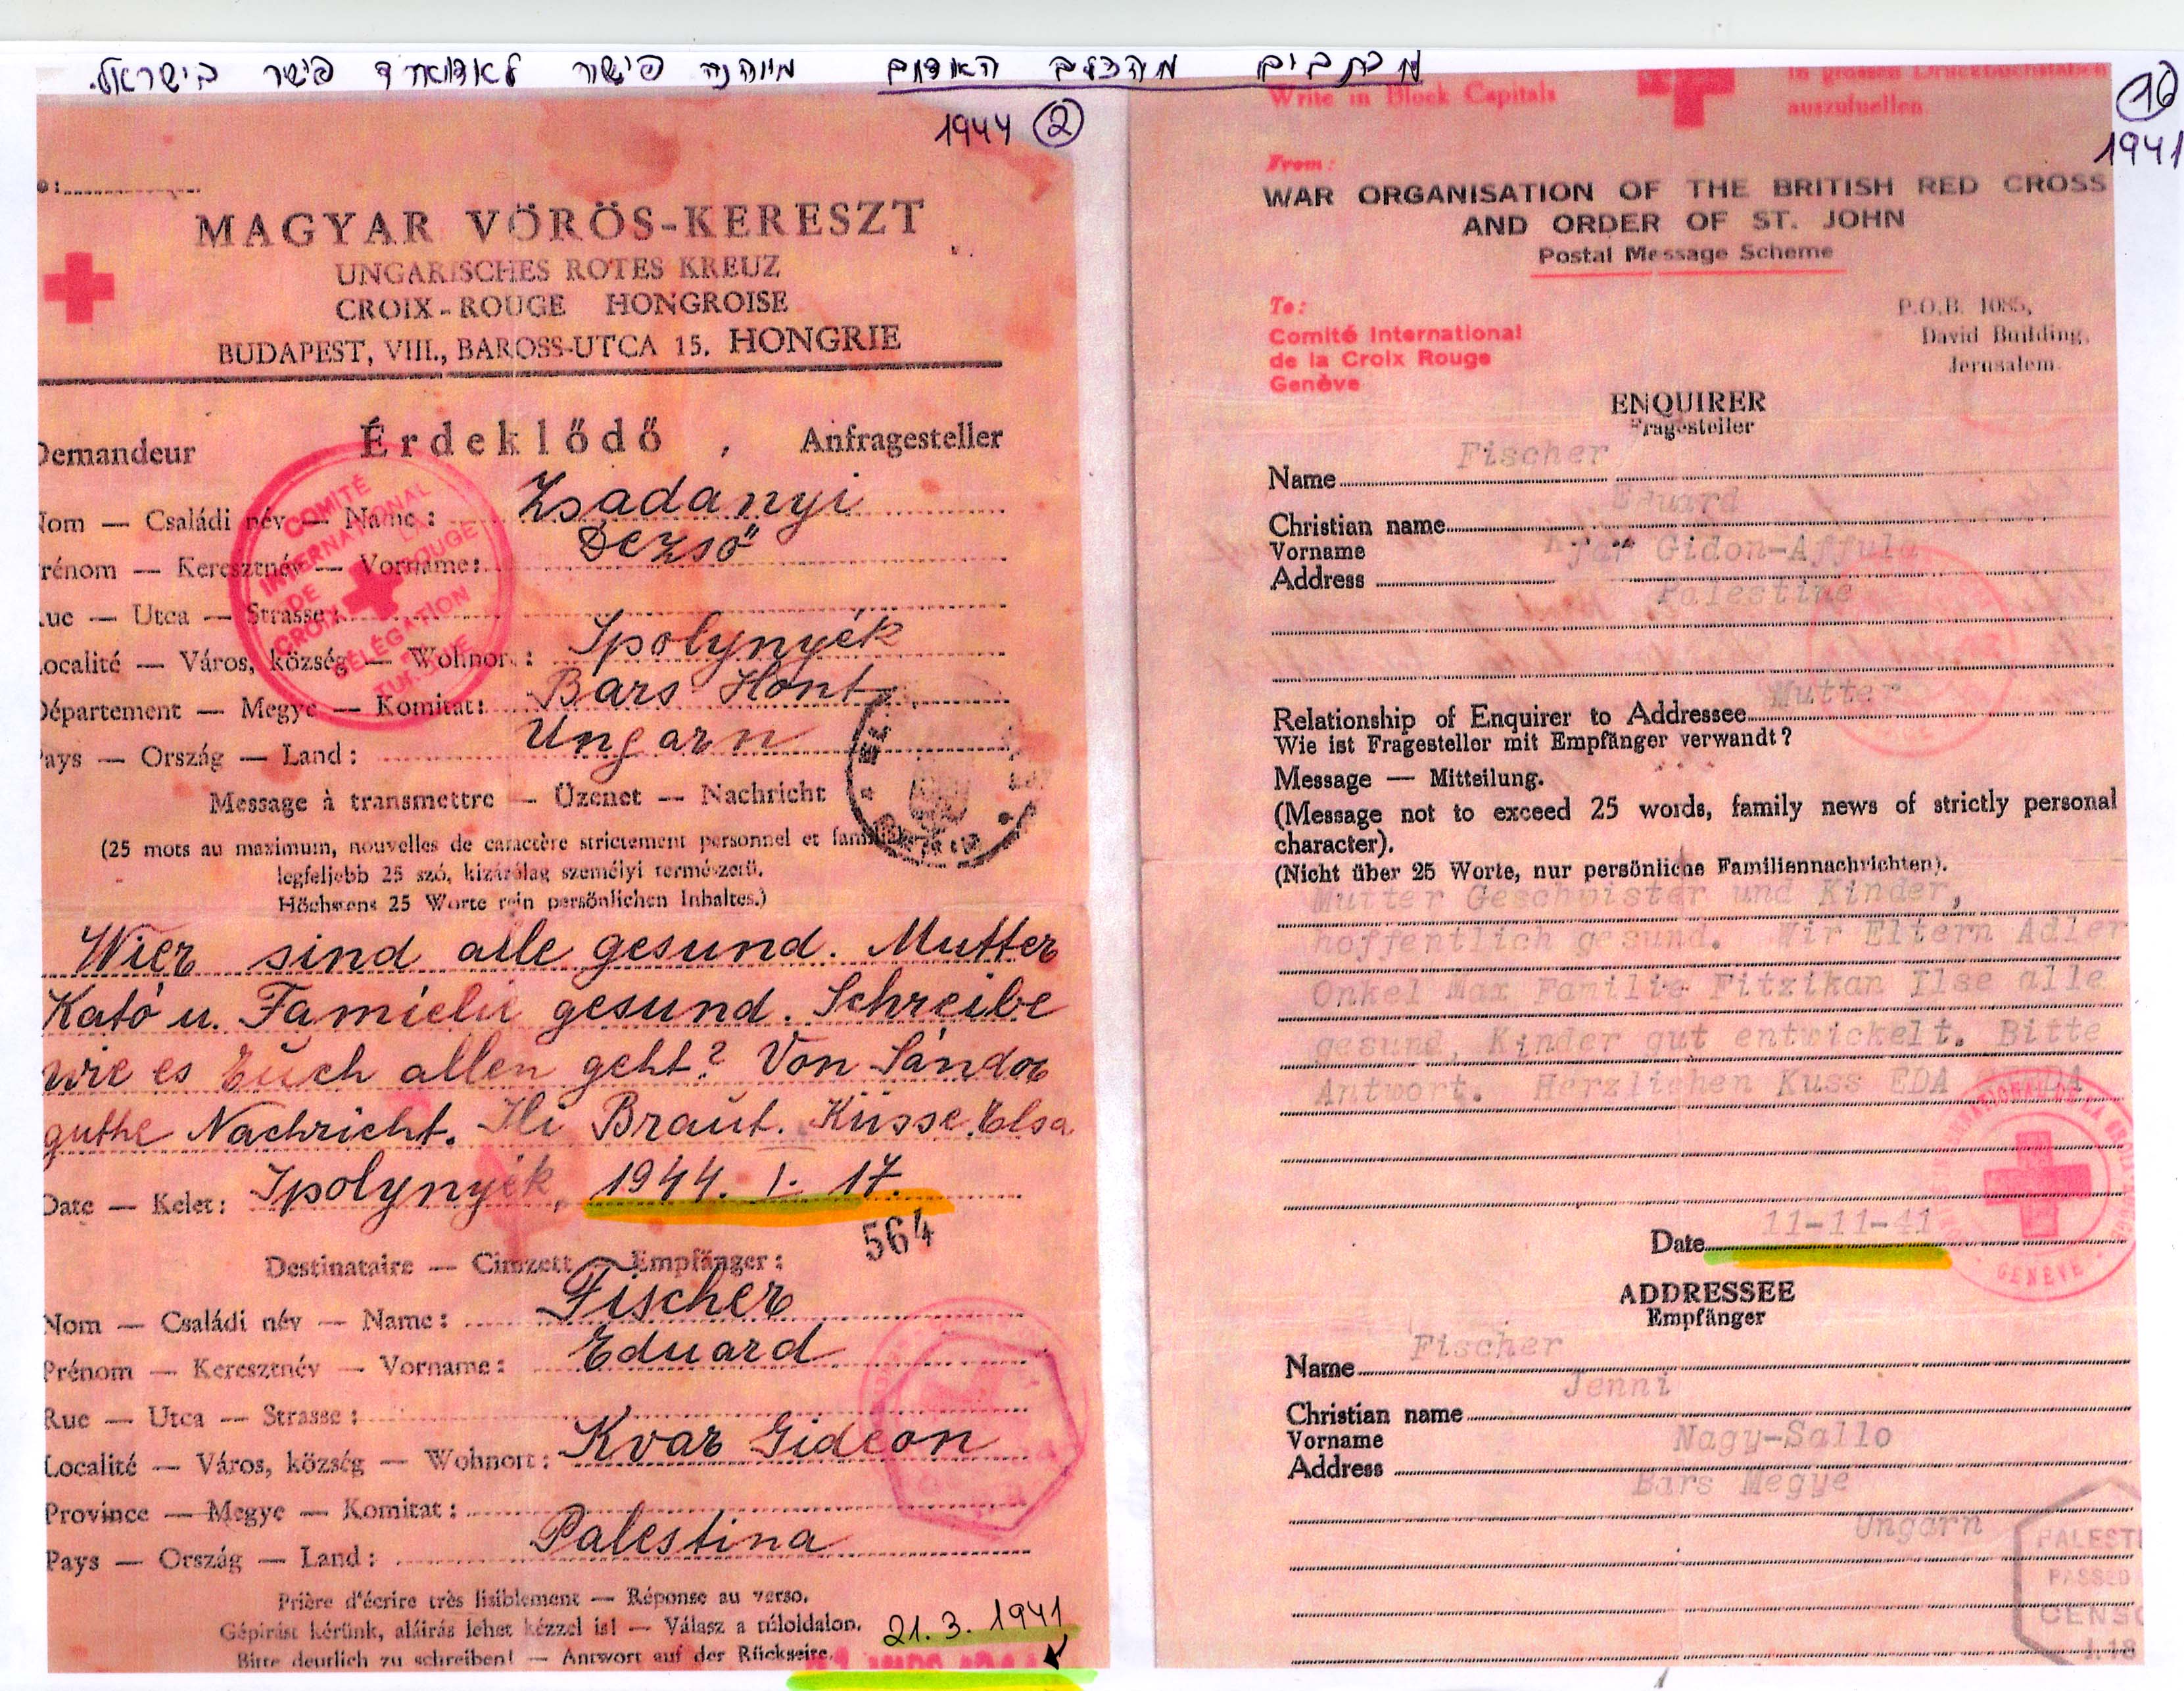 מכתבים מהצלב האדום מיוהנה פישר לאדוארד פישר בישראל.
1944 ②
MAGYAR VÖRÖS-KERESZT
UNGARISCHES ROTES KREUZ
CROIX-ROUGE HONGROISE
BUDAPEST, VIII., BAROSS-UTCA 15. HONGRIE
Demandeur Érdeklődő, Anfragesteller
Nom — Családi név — Name: Zsadanyi
Prénom — Keresztnév — Vorname: Dezső
Rue — Utca — Strasse:
Localité — Város, község — Wohnort: Ipolynyék
Département — Megye — Komitat: Bars Hont
Pays — Ország — Land: Ungarn
COMITÉ INTERNATIONAL DE LA CROIX ROUGE
DÉLÉGATION
Message à transmettre — Üzenet — Nachricht
(25 mots au maximum, nouvelles de caractère strictement personnel et familial
legfeljebb 25 szó, kizárólag személyi természetű.
Höchstens 25 Worte rein persönlichen Inhaltes.)
Wier sind alle gesund. Mutter
Kató u. Famielie gesund. Schreibe
wie es Euch allen geht? Von Sándor
guthe Nachricht. Ili Braut. Küsse. Elsa
Date — Kelet: Ipolynyék, 1944. I. 17.
564
Destinataire — Címzett Empfänger:
Nom — Családi név — Name: Fischer
Prénom — Keresztnév — Vorname: Eduard
Rue — Utca — Strasse:
Localité — Város, község — Wohnort: Kvar Gideon
Province — Megye — Komitat:
Pays — Ország — Land: Palestina
Prière d'écrire très lisiblement — Réponse au verso.
Gépírást kérünk, aláírás lehet kézzel is! — Válasz a túloldalon.
Bitte deutlich zu schreiben! — Antwort auf der Rückseite.
21.3.1941
1941
Write in Block Capitals
in grossen Druckbuchstaben
auszufuellen.
From:
WAR ORGANISATION OF THE BRITISH RED CROSS
AND ORDER OF ST. JOHN
Postal Message Scheme
To:
Comité International
de la Croix Rouge
Genève
P.O.B. 1085,
David Building,
Jerusalem.
ENQUIRER
Fragesteller
Name Fischer
Christian name Eduard
Vorname
Address Kfar Gidon-Affula
Palestine
Relationship of Enquirer to Addressee Mutter
Wie ist Fragesteller mit Empfänger verwandt?
Message — Mitteilung.
(Message not to exceed 25 words, family news of strictly personal
character).
(Nicht über 25 Worte, nur persönliche Familiennachrichten).
Mutter Geschwister und Kinder,
hoffentlich gesund. Wir Eltern Adler
Onkel Max Familie Fitzikan Ilse alle
gesund, Kinder gut entwickelt. Bitte
Antwort. Herzlichen Kuss EDA
Date 11-11-41
GENÈVE
ADDRESSEE
Empfänger
Name Fischer
Christian name Jenni
Vorname
Address Nagy-Sallo
Bars Megye
Ungarn
PALEST
PASSED
CENSO